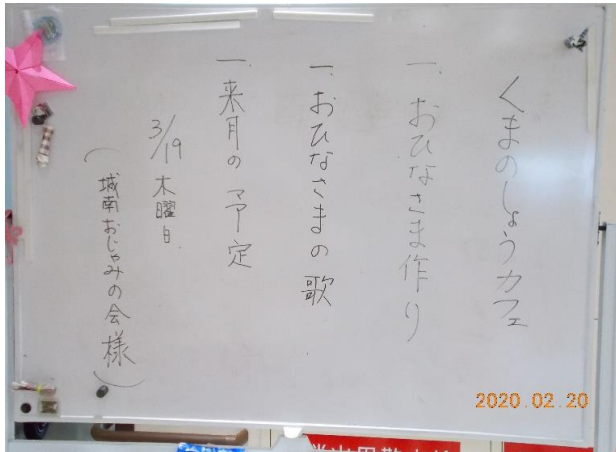 くまのしょうカフェ
一、おひなさま作り
一、おひなさまの歌
一、来月の予定
3/19 木曜日
(城南おじゃみの会様)
2020.02.20